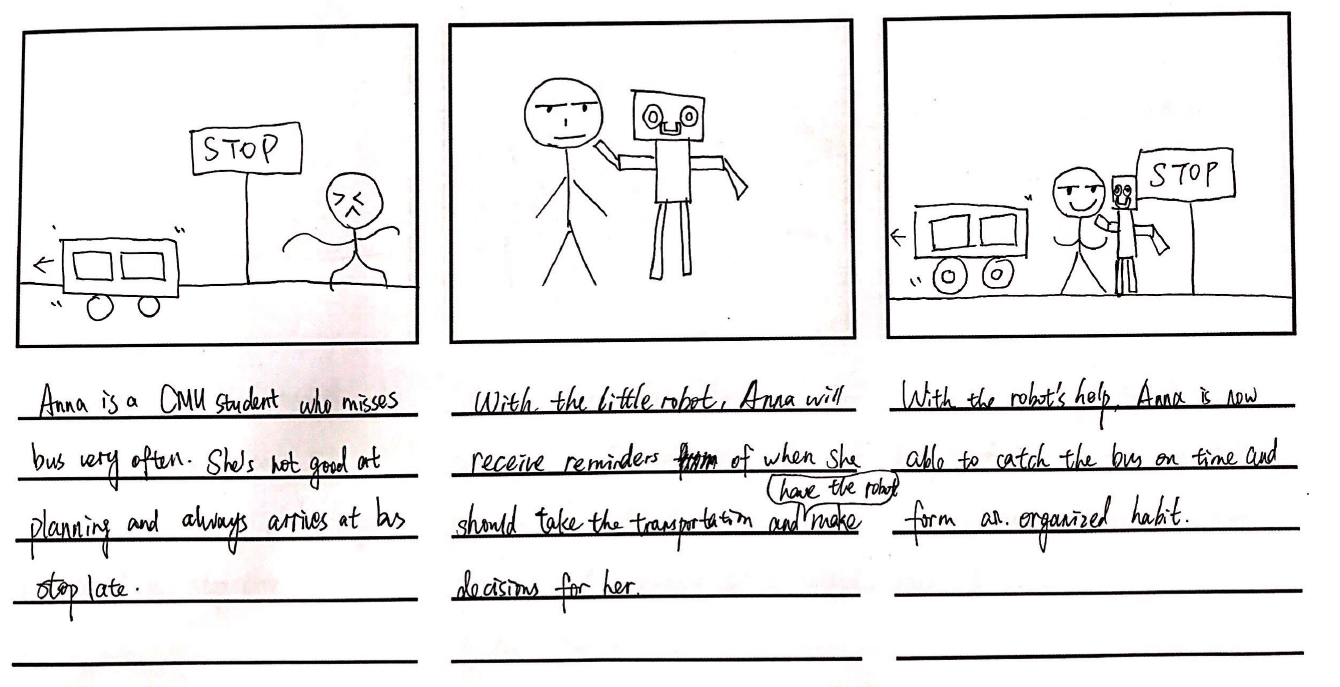 STOP
STOP
Anna is a CMU student who misses
bus very often. She's not good at
planning and always arrives at bus
stop late.
With the little robot, Anna will
receive reminders of when she
have the robot
should take the transportation and make
decisions for her.
With the robot's help, Anna is now
able to catch the bus on time and
form an organized habit.